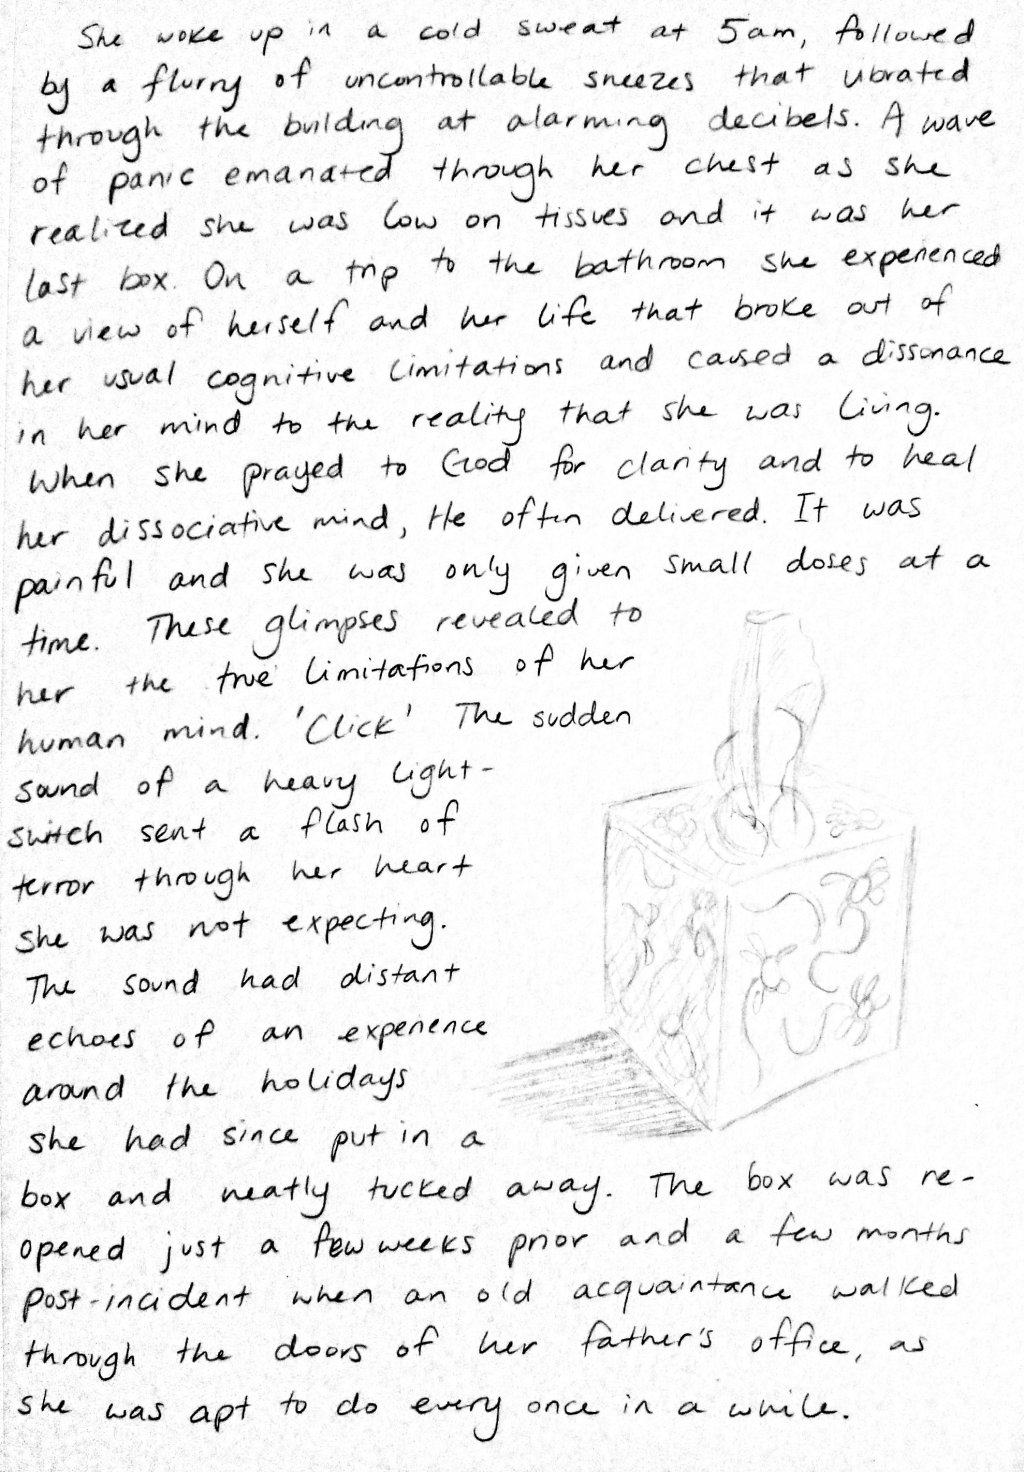 She woke up in a cold sweat at 5am, followed
by a flurry of uncontrollable sneezes that vibrated
through the building at alarming decibels. A wave
of panic emanated through her chest as she
realized she was low on tissues and it was her
last box. On a trip to the bathroom she experienced
a view of herself and her life that broke out of
her usual cognitive limitations and caused a dissonance
in her mind to the reality that she was living.
When she prayed to God for clarity and to heal
her dissociative mind, He often delivered. It was
painful and she was only given small doses at a
time. These glimpses revealed to
her the true limitations of her
human mind. 'Click' The sudden
sound of a heavy light-
switch sent a flash of
terror through her heart
she was not expecting.
The sound had distant
echoes of an experience
around the holidays
she had since put in a
box and neatly tucked away. The box was re-
opened just a few weeks prior and a few months
post-incident when an old acquaintance walked
through the doors of her father's office, as
she was apt to do every once in a while.